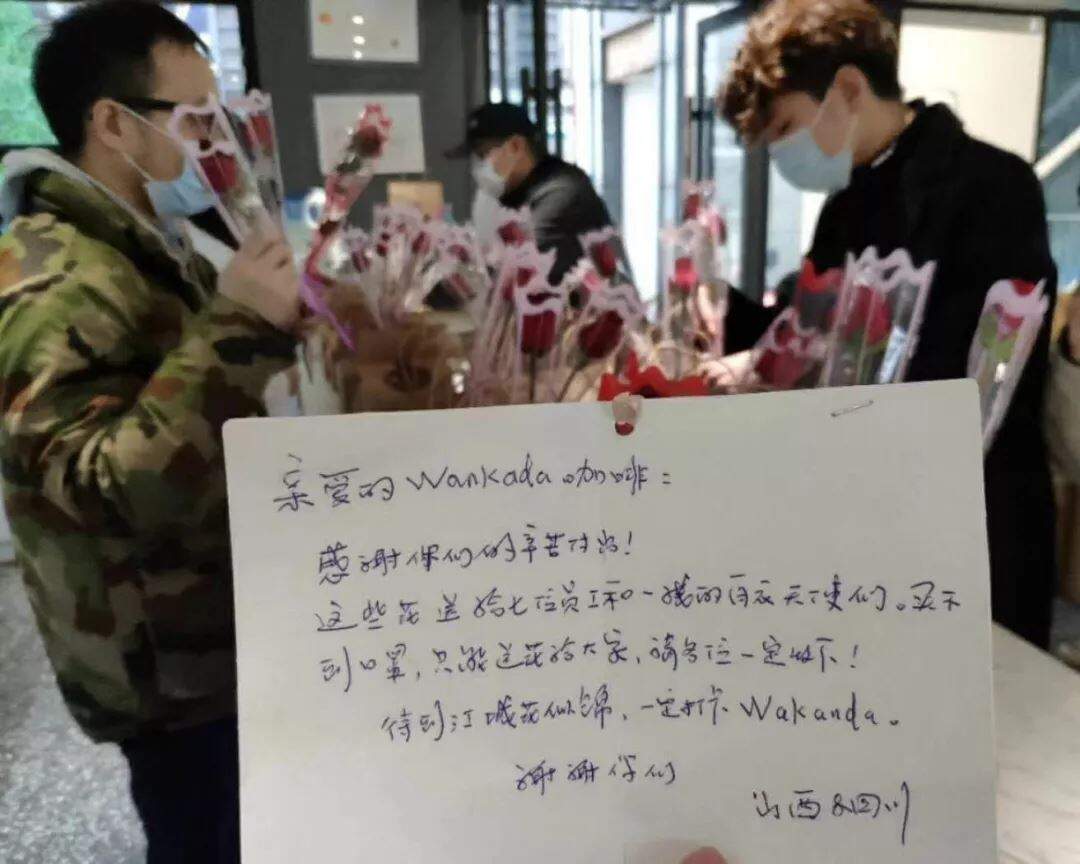 亲爱的Wankada咖啡：
感谢你们的辛苦付出！
这些花送给七位员工和一线的白衣天使们。买不
到口罩，只能送花给大家，请各位一定收下！
待到江城花似锦，一定打卡Wakanda。
谢谢你们
山西&四川